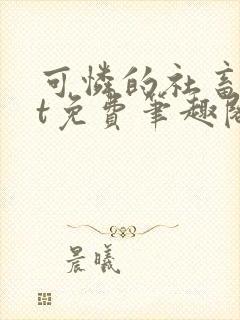 可憐的社畜
t免費筆趣閣
晨曦